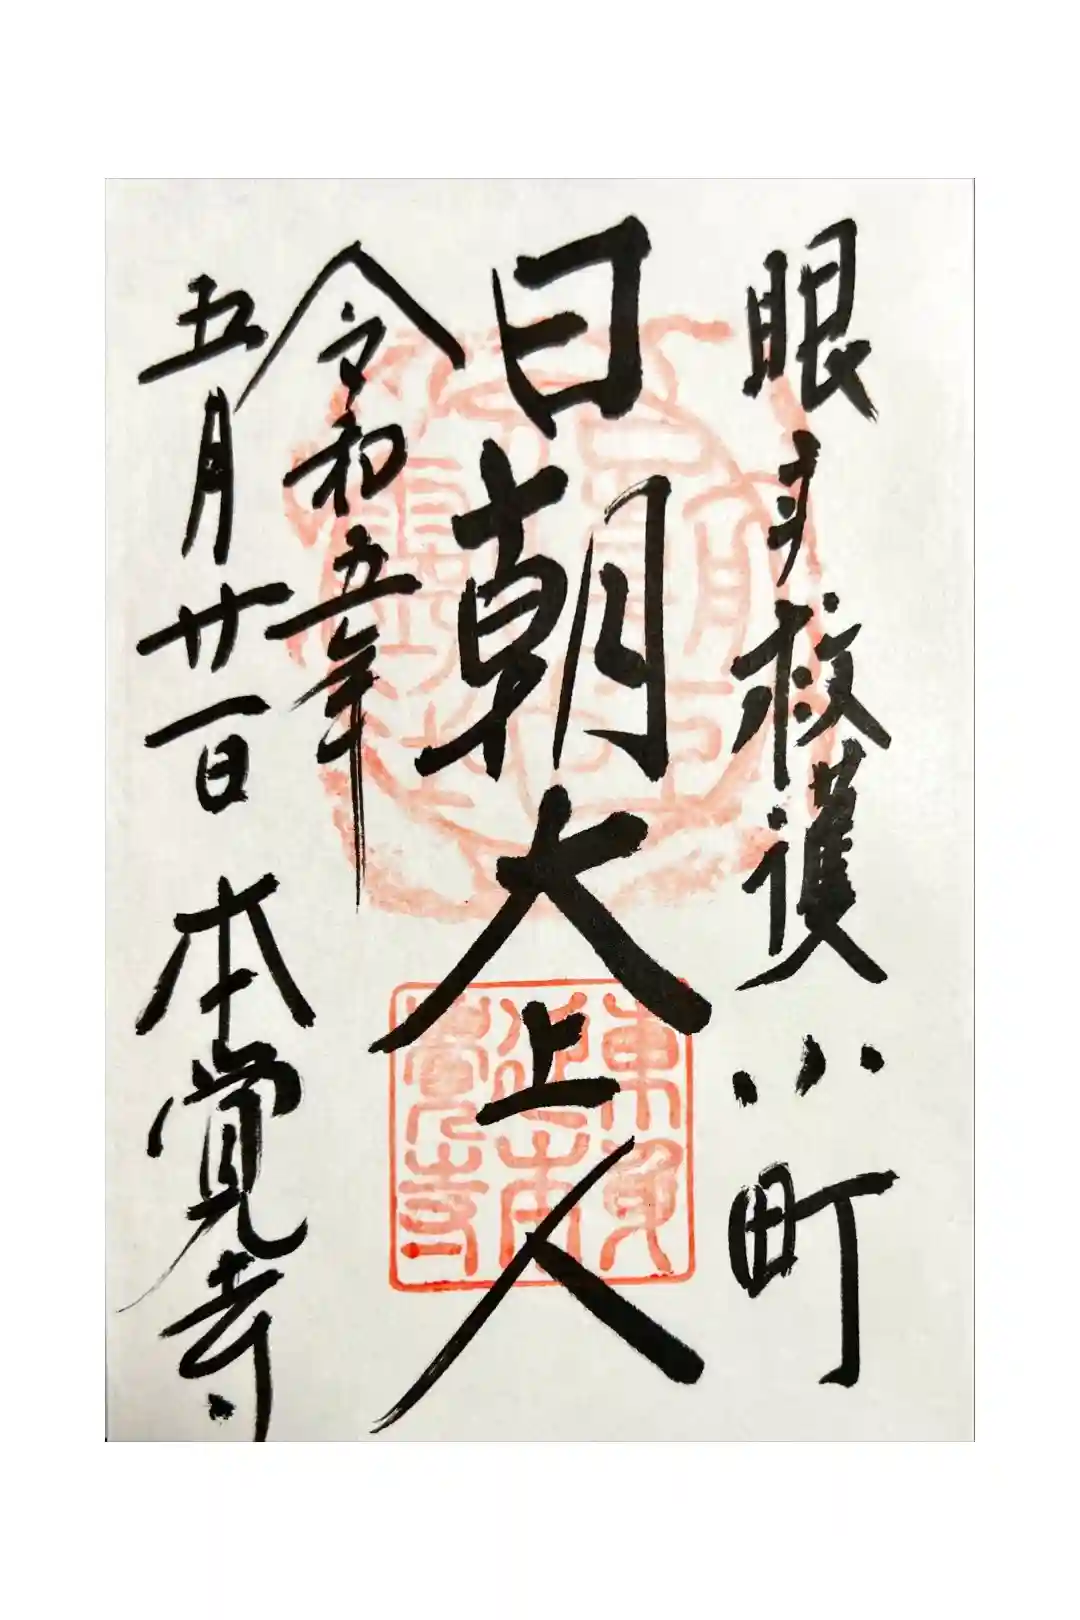 眼 救護小町
日朝大上人
令和五年
五月廿一日 本覚寺
東身
延本
覺寺